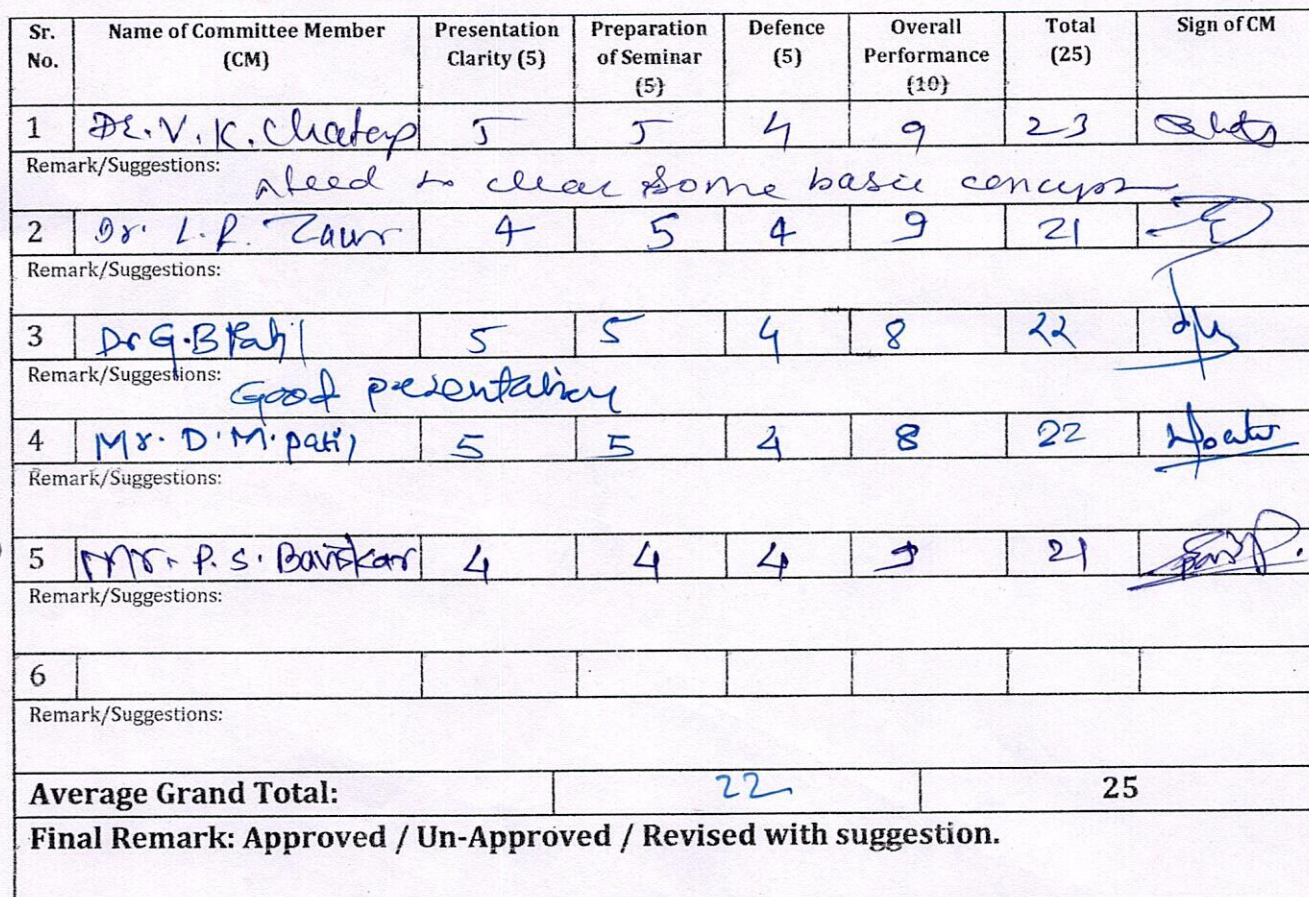 Sr. No. Name of Committee Member (CM) Presentation Clarity (5) Preparation of Seminar (5) Defence (5) Overall Performance (10) Total (25) Sign of CM
1 Dr. V. K. 5 5 4 9 23
Remark/Suggestions: Need to clear some basic concept
2 Dr. L. R. 4 5 4 9 21
Remark/Suggestions:
3 Dr G.B Patil 5 5 4 8 22
Remark/Suggestions: Good presentation
4 Mr. D.M. patil 5 5 4 8 22
Remark/Suggestions:
5 Mr. P. S. Baviskar 4 4 4 9 21
Remark/Suggestions:
6
Remark/Suggestions:
Average Grand Total: 22 25
Final Remark: Approved / Un-Approved / Revised with suggestion.